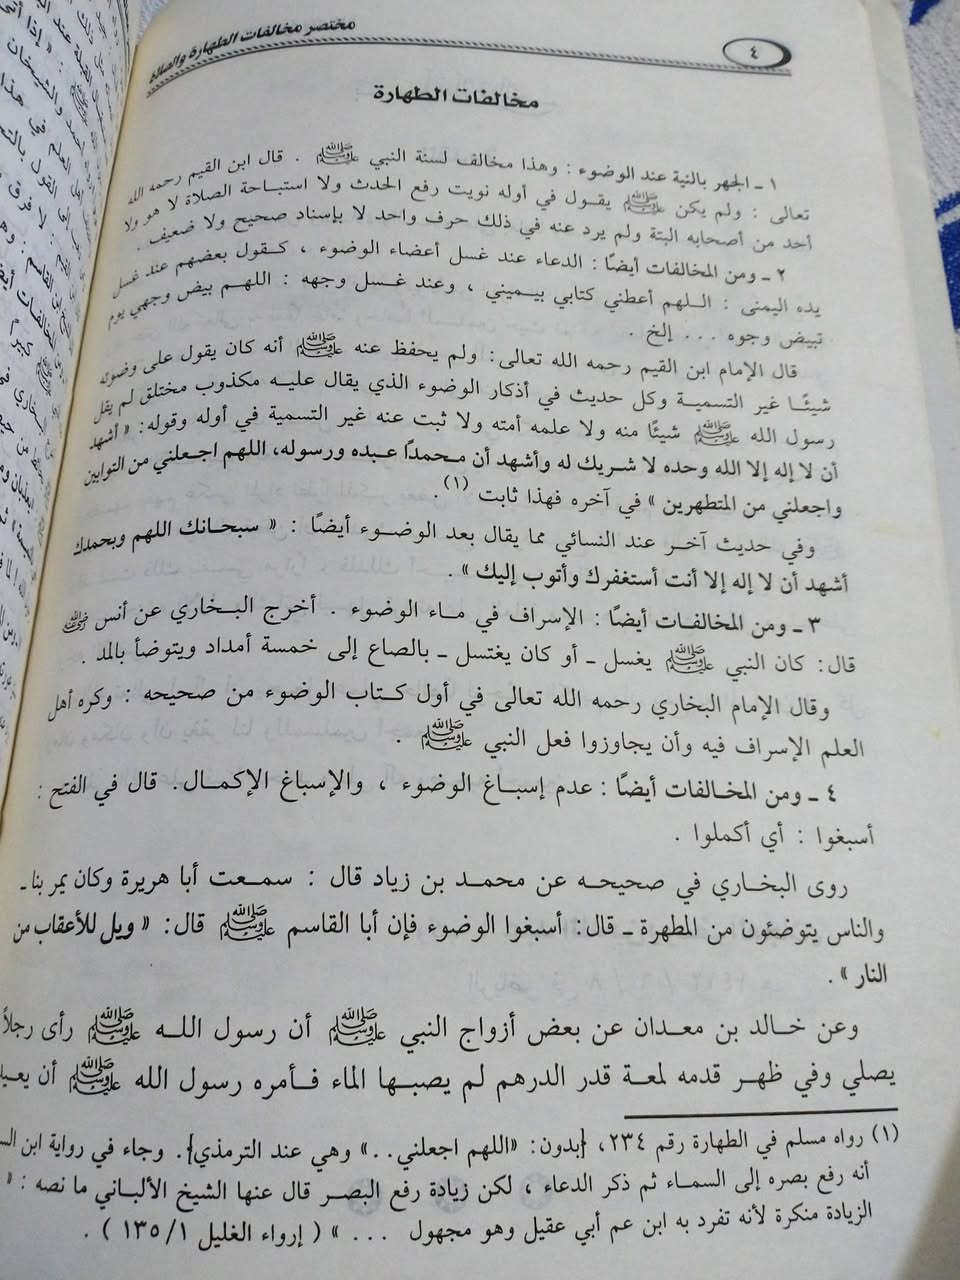 مختصر مخالفات الطهارة والصلاة
٤
مخالفات الطهارة
١ ـ الجهر بالنية عند الوضوء : وهذا مخالف لسنة النبي ﷺ . قال ابن القيم رحمه الله
تعالى : ولم يكن ﷺ يقول في أوله نويت رفع الحدث ولا استباحة الصلاة لا هو ولا
أحد من أصحابه البتة ولم يرد عنه في ذلك حرف واحد لا بإسناد صحيح ولا ضعيف .
٢ ـ ومن المخالفات أيضًا : الدعاء عند غسل أعضاء الوضوء ، كقول بعضهم عند غسل
يده اليمنى : اللهم أعطني كتابي بيميني ، وعند غسل وجهه : اللهم بيض وجهي يوم
تبيض وجوه ... إلخ .
قال الإمام ابن القيم رحمه الله تعالى: ولم يحفظ عنه ﷺ أنه كان يقول على وضوئه
شيئًا غير التسمية وكل حديث في أذكار الوضوء الذي يقال عليه مكذوب مختلق لم يقل
رسول الله ﷺ شيئًا منه ولا علمه أمته ولا ثبت عنه غير التسمية في أوله وقوله: « أشهد
أن لا إله إلا الله وحده لا شريك له وأشهد أن محمدًا عبده ورسوله، اللهم اجعلني من التوابين
واجعلني من المتطهرين » في آخره فهذا ثابت (١).
وفي حديث آخر عند النسائي مما يقال بعد الوضوء أيضًا : « سبحانك اللهم وبحمدك
أشهد أن لا إله إلا أنت أستغفرك وأتوب إليك » .
٣ ـ ومن المخالفات أيضًا : الإسراف في ماء الوضوء . أخرج البخاري عن أنس رضي الله عنه
قال: كان النبي ﷺ يغسل ـ أو كان يغتسل ـ بالصاع إلى خمسة أمداد ويتوضأ بالمد .
وقال الإمام البخاري رحمه الله تعالى في أول كتاب الوضوء من صحيحه : وكره أهل
العلم الإسراف فيه وأن يجاوزوا فعل النبي ﷺ .
٤ ـ ومن المخالفات أيضًا : عدم إسباغ الوضوء ، والإسباغ الإكمال. قال في الفتح :
أسبغوا : أي أكملوا .
روى البخاري في صحيحه عن محمد بن زياد قال : سمعت أبا هريرة وكان يمر بنا ـ
والناس يتوضئون من المطهرة ـ قال: أسبغوا الوضوء فإن أبا القاسم ﷺ قال: « ويل للأعقاب من
النار » .
وعن خالد بن معدان عن بعض أزواج النبي ﷺ أن رسول الله ﷺ رأى رجلاً
يصلي وفي ظهر قدمه لمعة قدر الدرهم لم يصبها الماء فأمره رسول الله ﷺ أن
(١) رواه مسلم في الطهارة رقم ٢٣٤، {بدون: «اللهم اجعلني..» وهي عند الترمذي}. وجاء في رواية ابن
أنه رفع بصره إلى السماء ثم ذكر الدعاء ، لكن زيادة رفع البصر قال عنها الشيخ الألباني ما نصه : «
الزيادة منكرة لأنه تفرد به ابن عم أبي عقيل وهو مجهول ... » ( إرواء الغليل ١٣٥/١ ) .